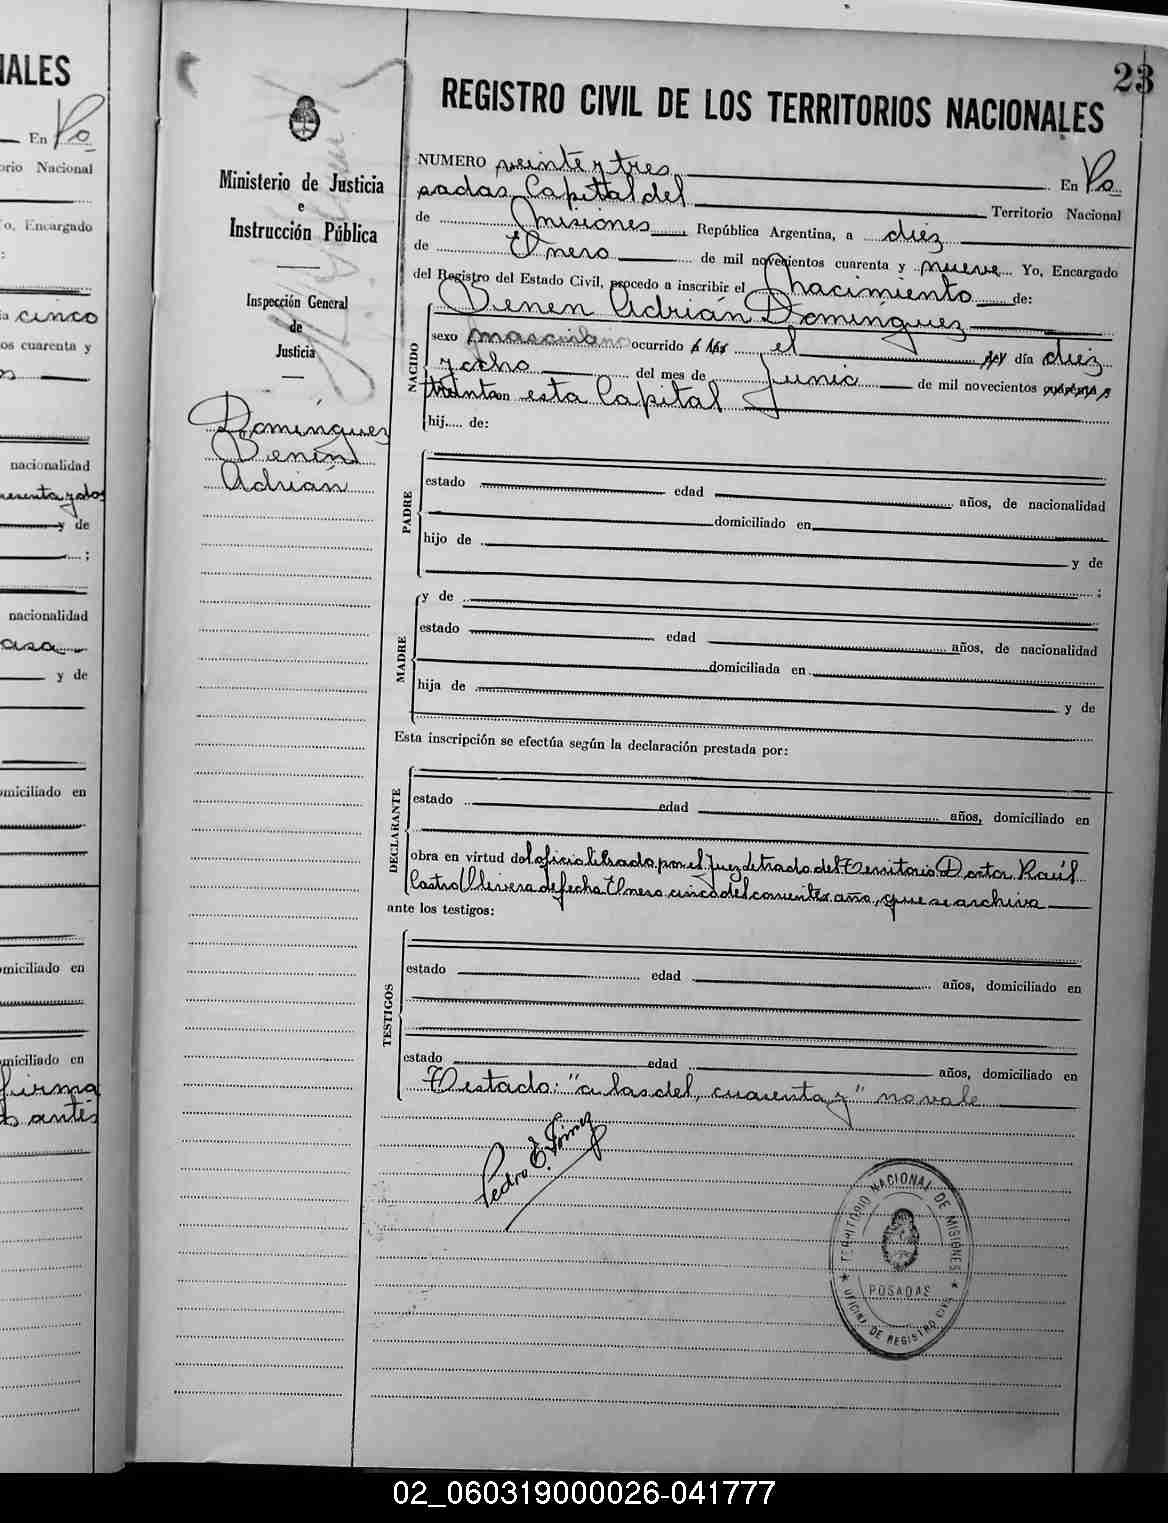 NALES
En Po
orio Nacional
o, Encargado
:
ia cinco
os cuarenta y
nacionalidad
y de
;
nacionalidad
asa
y de
omiciliado en
omiciliado en
omiciliado en
firma
antes
23
REGISTRO CIVIL DE LOS TERRITORIOS NACIONALES
Ministerio de Justicia
e
Instrucción Pública
Inspección General
de
Justicia
Domínguez
Benen
Adrián
NUMERO veinte y tres En Po
sadas Capital del Territorio Nacional
de Misiones República Argentina, a diez
de Enero de mil novecientos cuarenta y nueve Yo, Encargado
del Registro del Estado Civil, procedo a inscribir el nacimiento de:
Benen Adrián Domínguez
NACIDO
sexo masculino ocurrido a las el del día diez
y ocho del mes de Junio de mil novecientos cuarenta y
treinta en esta Capital
hij..... de:
PADRE
estado edad años, de nacionalidad
domiciliado en
hijo de y de
;
MADRE
y de
estado edad años, de nacionalidad
domiciliada en
hija de y de
Esta inscripción se efectúa según la declaración prestada por:
DECLARANTE
estado edad años, domiciliado en
obra en virtud del oficio librado por el Juez Letrado del Territorio Doctor Raúl
Castro Olivera de fecha Enero cinco del corriente año, que se archiva
ante los testigos:
TESTIGOS
estado edad años, domiciliado en
estado edad años, domiciliado en
Testado: "a las del, cuarenta y" no vale
Pedro E. Gómez
TERRITORIO NACIONAL DE MISIONES
POSADAS
OFICINA DE REGISTRO CIVIL
02_060319000026-041777